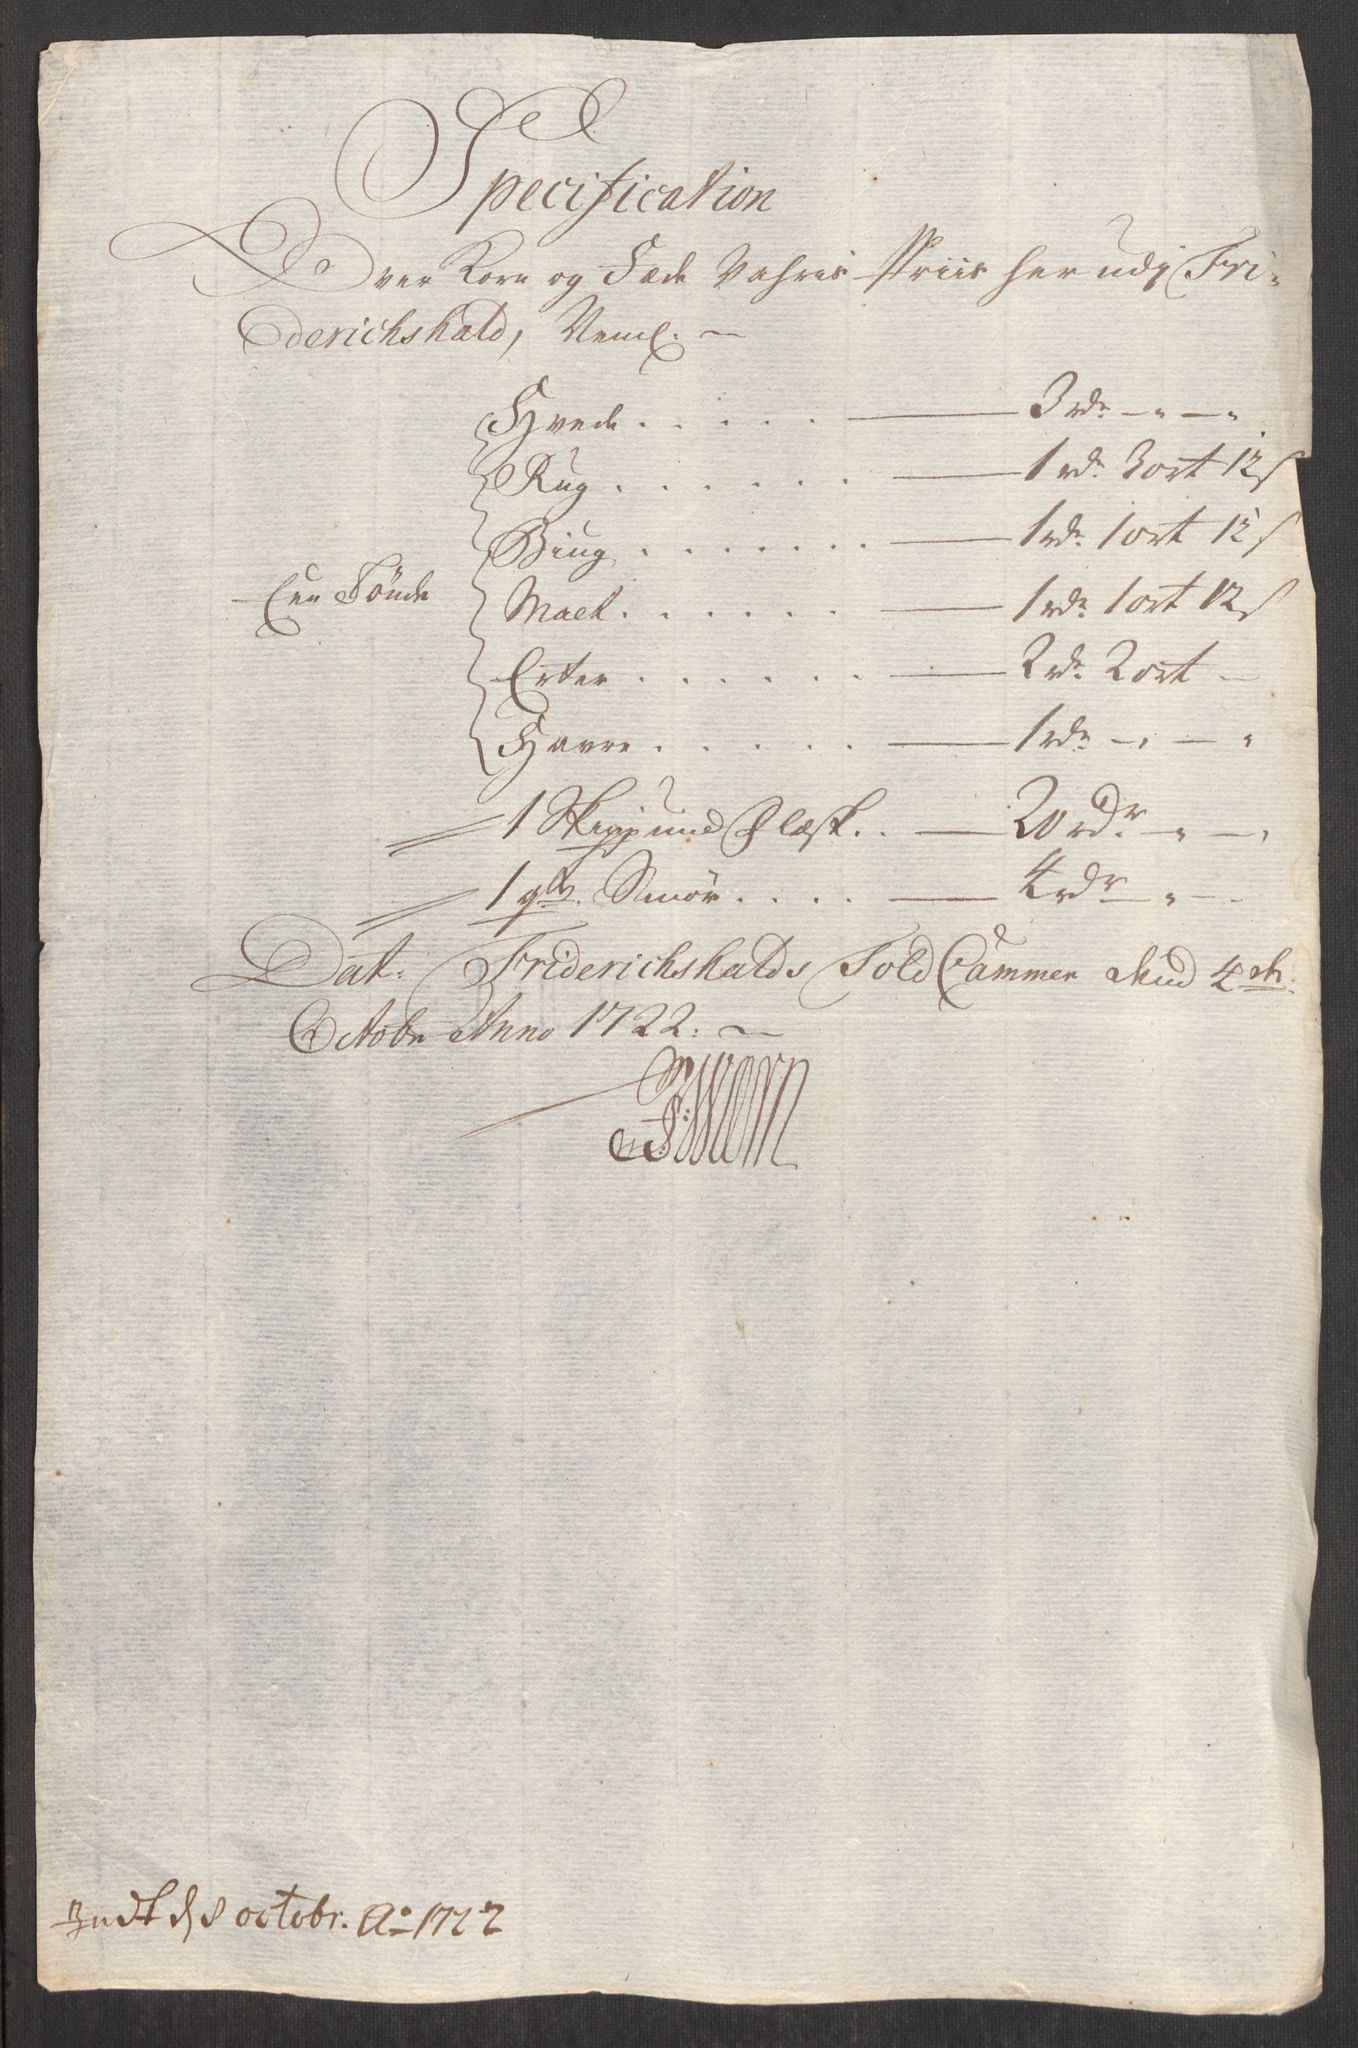 Specification
Over Korn og Fæde Vahris Priis her udj Fri-
derichshald, Neml:
Hvede . . . . . 3 rdr — " — "
Rug . . . . . . 1 rdr 3 ort 12 s
Biug . . . . . . . 1 rdr 1 ort 12 s
Een Tönde
Malt . . . . . . 1 rdr 1 ort 12 s
Erter . . . . . . 2 rdr 2 ort —
Havre . . . . . 1 rdr — " — "
1 Skippund Flæsk . . 20 rdr — " —
1 Smör . . . . 4 rdr — " —
Dat: Friderichshalds Told Cammer dend 4de
Octobr Anno 1722.
Indt d 8 octobr. Ao 1722